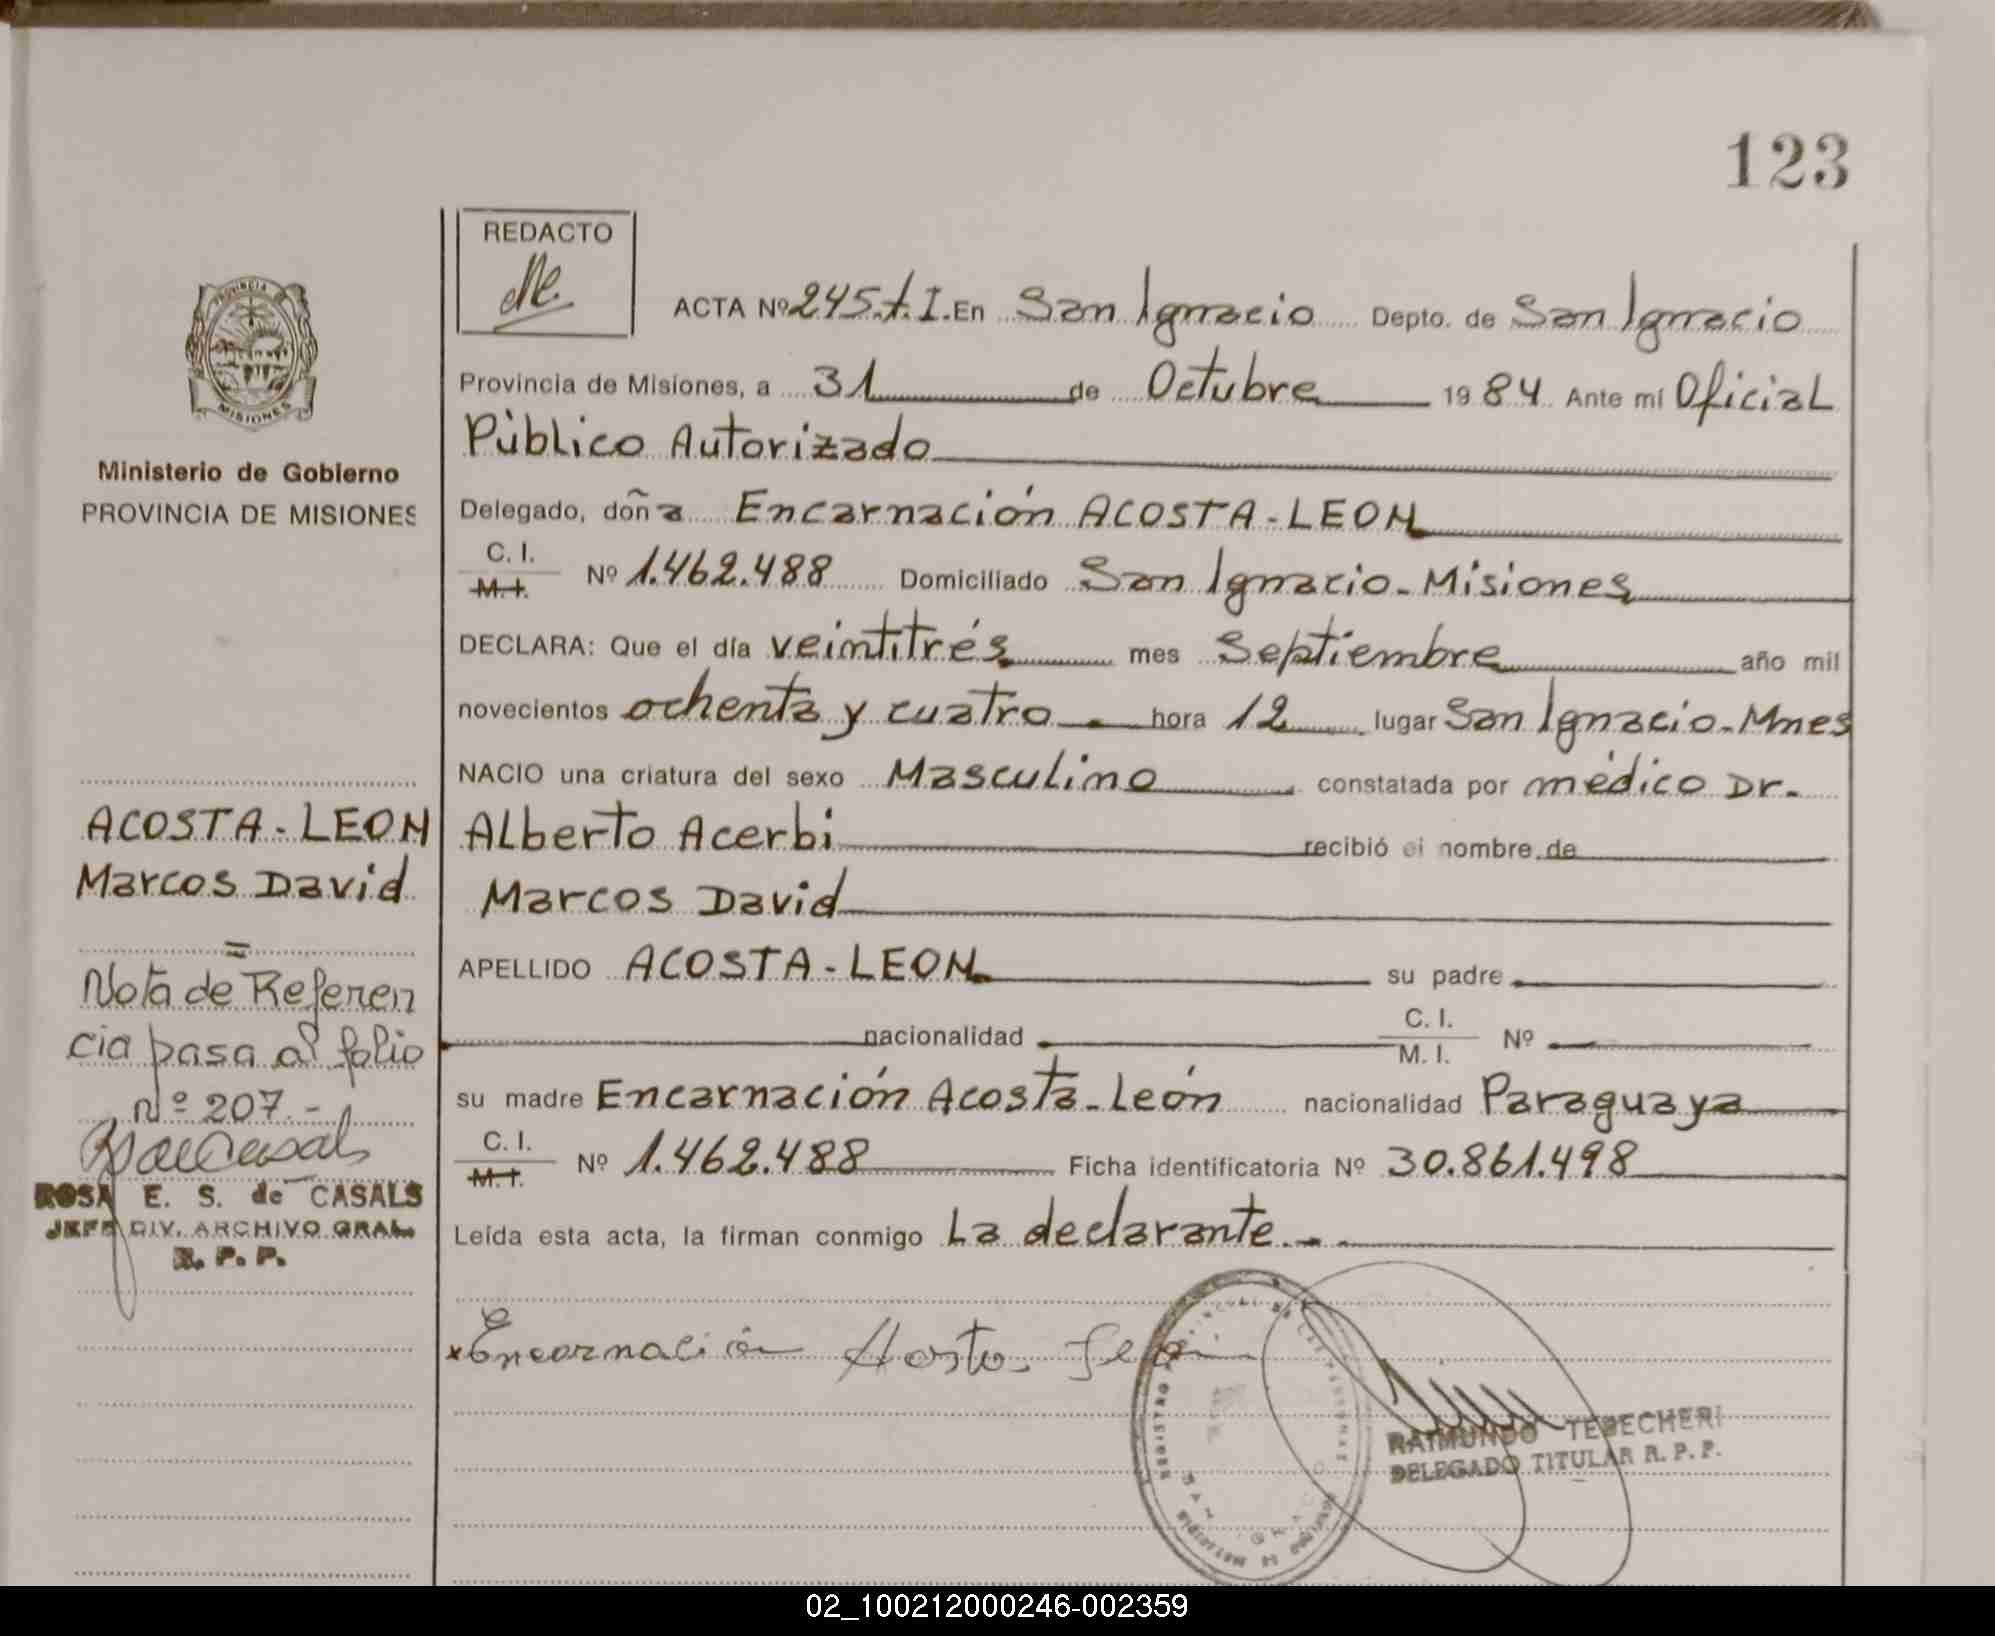 123
REDACTO
PROVINCIA
MISIONES
Ministerio de Gobierno
PROVINCIA DE MISIONES
ACTA Nº 245.t.I. En San Ignacio Depto. de San Ignacio
Provincia de Misiones, a 31 de Octubre 1984 Ante mí Oficial
Público Autorizado
Delegado, doña Encarnación ACOSTA-LEON
C. I.
M. I. Nº 1.462.488 Domiciliado San Ignacio-Misiones
DECLARA: Que el día veintitrés mes Septiembre año mil
novecientos ochenta y cuatro hora 12 lugar San Ignacio-Mnes
NACIO una criatura del sexo Masculino constatada por médico Dr.
Alberto Acerbi recibió el nombre de
Marcos David
APELLIDO ACOSTA-LEON su padre
nacionalidad C. I.
M. I. Nº
su madre Encarnación Acosta-León nacionalidad Paraguaya
C. I.
M. I. Nº 1.462.488 Ficha identificatoria Nº 30.861.498
Leída esta acta, la firman conmigo La declarante.-
ACOSTA-LEON
Marcos David
=
Nota de Referen
cia pasa al folio
Nº 207.-
ROSA E. S. de CASALS
JEFE DIV. ARCHIVO GRAL.
R. P. P.
x Encarnación Acosta León
RAIMUNDO TEBECHERI
DELEGADO TITULAR R. P. P.
02_100212000246-002359